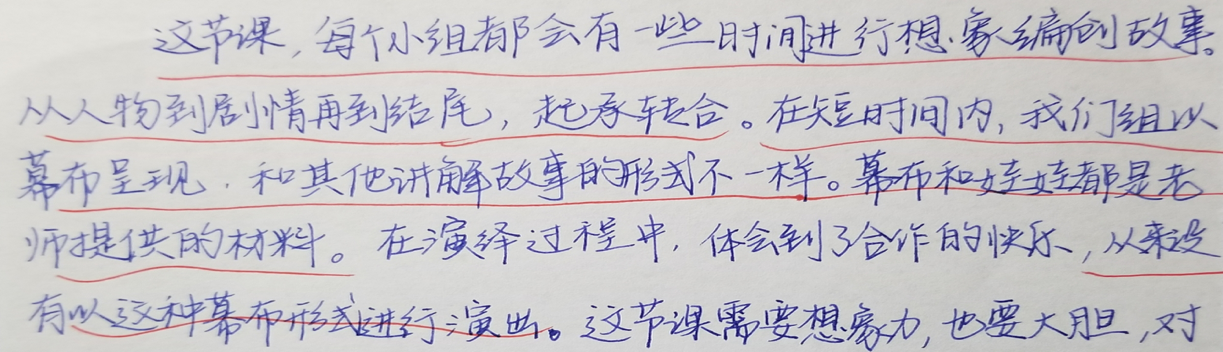 这节课，每个小组都会有一些时间进行想象编创故事。
从人物到剧情再到结尾，起承转合。在短时间内，我们组以
幕布呈现，和其他讲解故事的形式不一样。幕布和娃娃都是老
师提供的材料。在演绎过程中，体会到了合作的快乐，从来没
有以这种幕布形式进行演出。这节课需要想象力，也要大胆，对